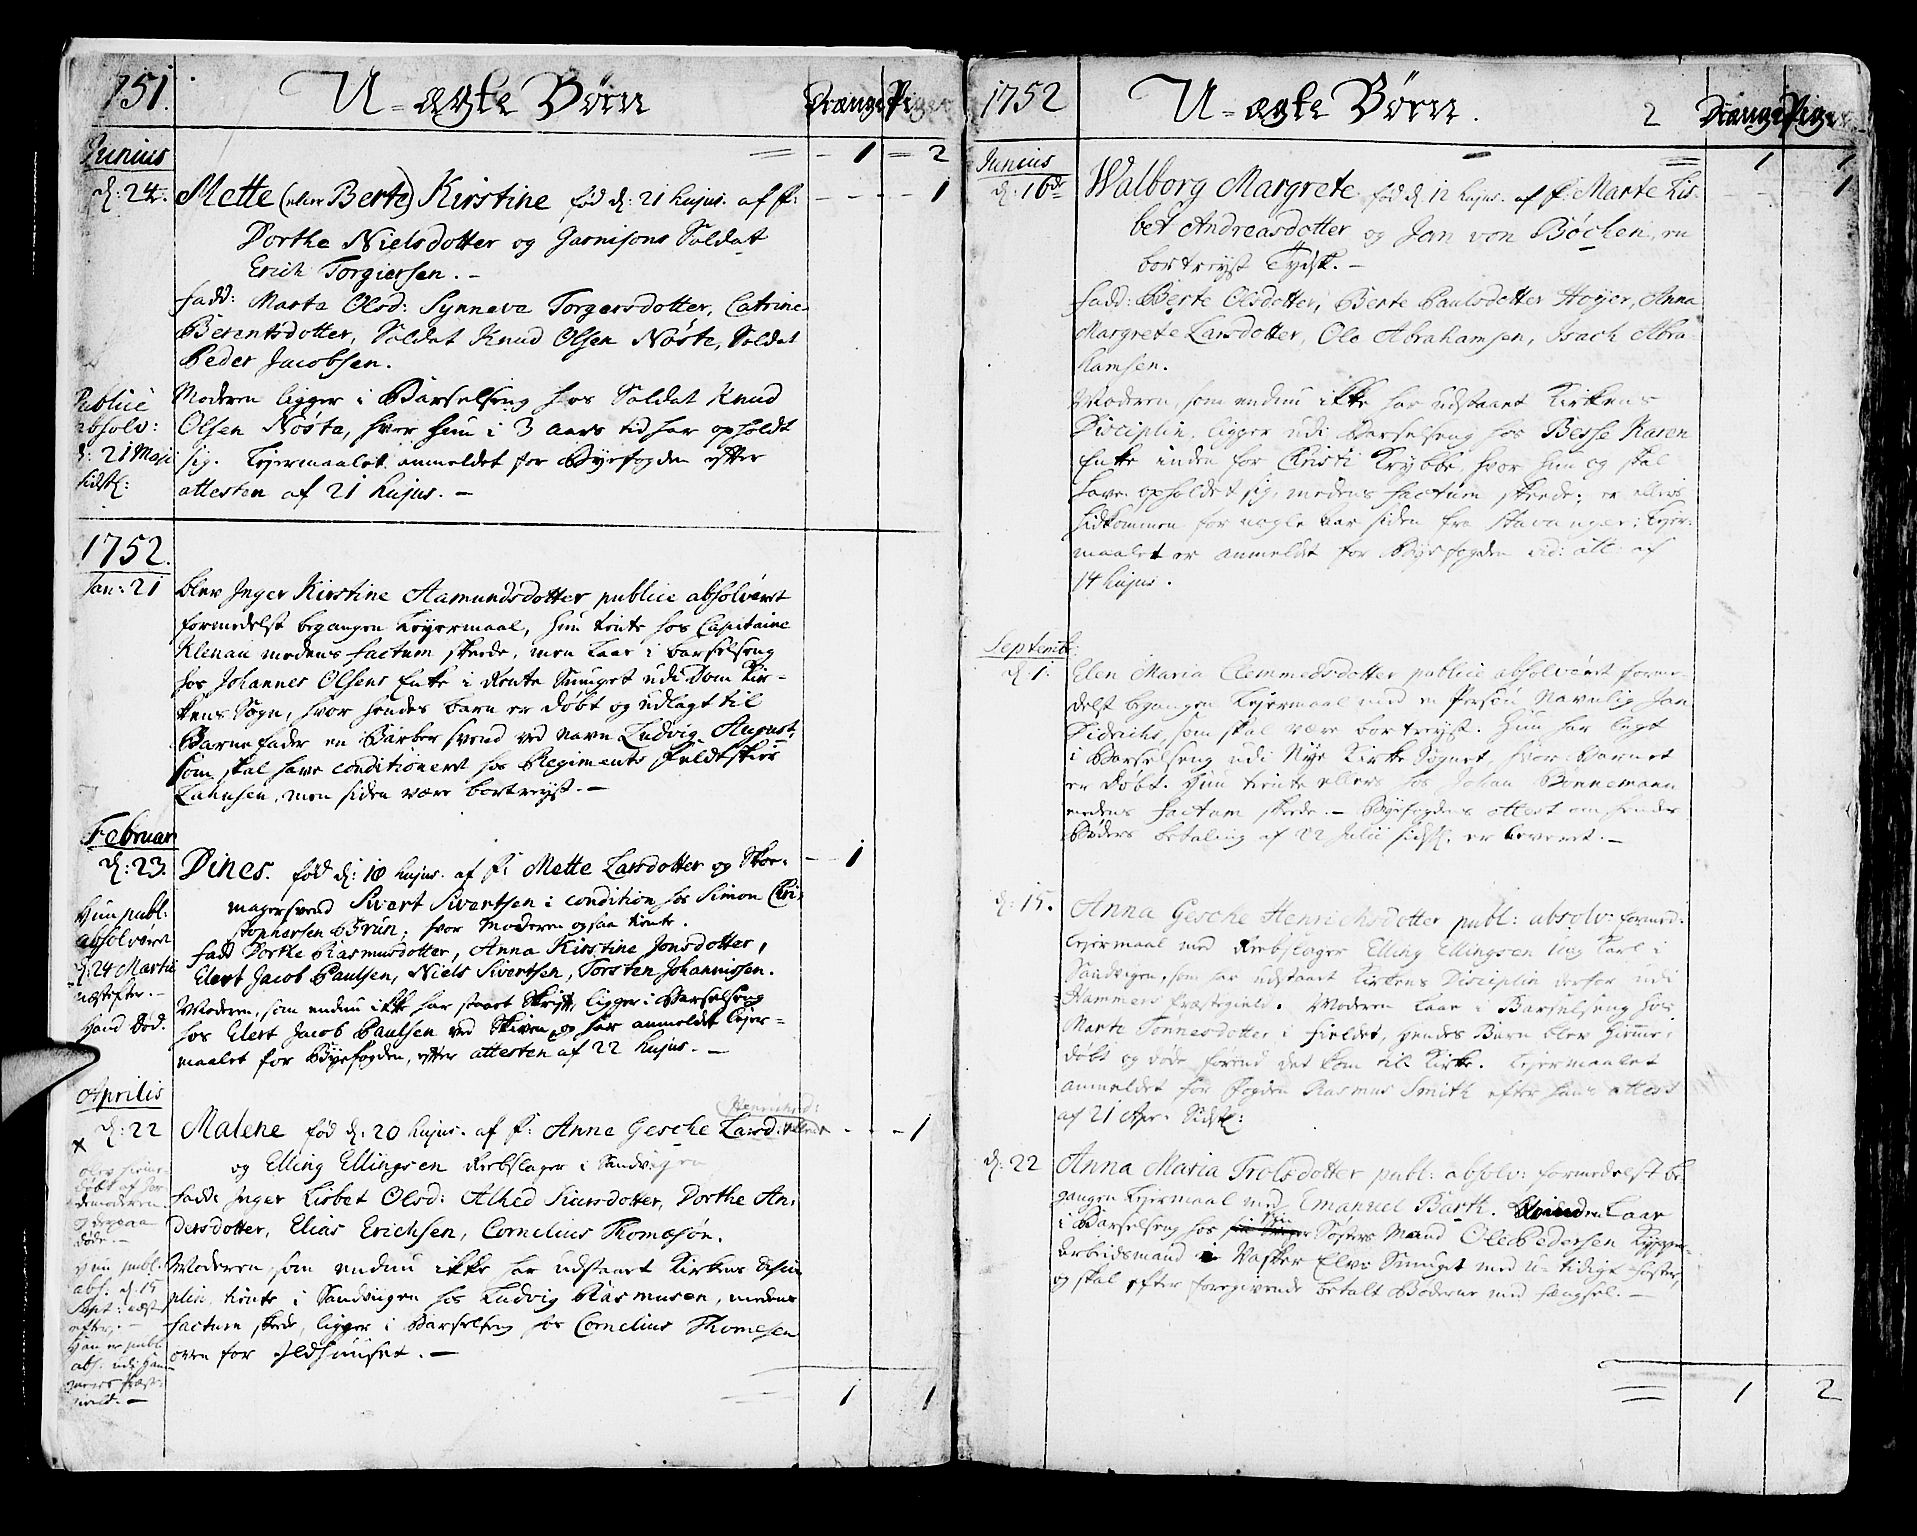 1751. U-ægte Børn Drænge Piger
Junius = - 1 = 2
d: 24. Mette (eller Berte) Kirstine fød d: 21 hujus. af p: - - - - 1
Dorthe Nielsdotter og Garnisons Soldat
Erich Torgiersen. -
Fadd: Marta Olsd: Synneva Torgersdotter, Catrine
Berentsdotter, Soldat Knud Olsen Nøste, Soldat
Peder Jacobsen.
Publice Moderen ligger i Barselseng hos Soldat Knud
absolv: Olsen Nøsta, hvor hun i 3 aars tid har opholdt
d: 21 Maji sig. Leyermaalet anmeldet for Byefogden efter
sidstl: attesten af 21 hujus. -
1752.
Jan: 21 blev Inger Kirstine Aamundsdotter publice absolveret
formedelst begangen Leyermaal, hun tiente hos Capitaine
Klenau medens factum skeede, men Laae i barselseng
hos Johannes Olsens Enke i Rente Smuget udi Dom Kir-
kens Sogn, hvor hendes barn er døbt og udlagt til
Barnefader en Barber svend ved navn Ludvig August,
som skal have conditioneret hos Regiments Feldtskier
Lahnsen, men siden være bortreyst. -
Februar
d: 23. Dines. fød d: 18 hujus. af p: Mette Larsdotter og Skoe- - - 1
magersvend Sivert Sivertsen i condition hos Simon Chri-
Hun publ: stophersen Brun, hvor Moderen ogsaa tiente.
absolveret Fadd Dorthe Rasmusdotter, Anna Kirstine Jonsdotter,
d: 24 Martii Elert Jacob Paulsen, Niels Sivertsen, Torsten Johannissen.
næstefter. - Moderen, som endnu ikke har staaet Skrifte, ligger i Barselseng
Hand død. hos Elert Jacob Paulsen ved Skiven, og har anmeldet Leyer-
maalet for Byefogden, efter attesten af 22 hujus. -
Aprilis Henrichsd:
d: 22 Malene fød d: 20 hujus. af p: Anne Gesche Larsd: - - - 1
x og Elling Ellingsen Rebslager i Sandvigen
blev hiemme- Fadd: Inger Lisbet Olsd: Alhed Larsdotter, Dorthe An-
døbt af Jor- dersdotter, Elias Erichsen, Cornelius Thomæsøn.
demoderen.
og degpaa
døde. -
Hun publ: Moderen, som endnu ikke har udstaaet Kirkens Disci-
abs. d. 15 plin, tiente i Sandvigen hos Ludvig Rasmusen, medens
Sept: næst factum skede, ligger i Barselseng hos Cornelius Thomesen
efter. - oven for Ildhuuset. -
Han er publ:
abs. udi Ham-
mers Præste-
gield. - = 1 1
1752 U-ægte Børn. 2 Drænge Piger
Junius = 1 1
d: 16de Walborg Margrete fød d 12 hujus. af p: Marte Lis- 1
bet Andreasdotter og Jan von Bøchen, en
bortreyst Tydsk. -
Fadd: Berte Olsdotter, Berte Paulsdotter Høyer, Anna
Margrete Larsdotter, Ole Abrahamsen, Isach Abra-
hamsen.
Moderen, som endnu ikke har udstaaet Kirkens
Disciplin, ligger udi Barselseng hos Besse Karen
Enke inden for Christi Krybbe, hvor hun og skal
have opholdet sig, medens factum skeede; er ellers
hidkommen for nogle Aar siden fra Stavanger; Leyer-
maalet er anmeldet for Byefogden vid: att: af
14 hujus.
Septemb:
d 1. Elen Maria Clemmedsdotter publice absolveret forme-
delst begangen Leyermaal med en Person Navnlig Jan
Didrichs, som skal være bortreyst. Hun har ligt
i Barselseng udi Nye Kirke Sognet, hvor Barnet
er døbt. Hun tiente ellers hos Johan Bennemann
medens factum skeede. - Byefogdens attest om hendes
Bøders betaling af 22 Julii sidstl. er leveret. -
d: 15. Anna Gesche Henrichsdotter publ: absolv: formed.
Leyermaal med Rebslager Elling Ellingsen ung Karl i
Sandvigen, som har udstaaet Kirkens Disciplin derfor udi
Hammers Præstegield. Moderen Laae i Barselseng hos
Marte Tønnesdotter i Fieldet, hendes Barn blev hiemme-
døbt og døde førend det kom til Kirke. Leyermaalet
anmeldet for Fogden Rasmus Smith efter hans attest
af 21 Apr. Sidstl:
d: 22 Anna Maria Trolsdotter publ: absolv: formedelst be-
gangen Leyermaal med Emanuel Barth. Laae
i Barselseng hos Sin Søsters Mand Ole Pedersen
Arbeidsmand i Vasker Elvs Smuget med u-tidigt Foster,
og skal efter foregivende betalt Bøderne med Fængsel. -
= 1 2